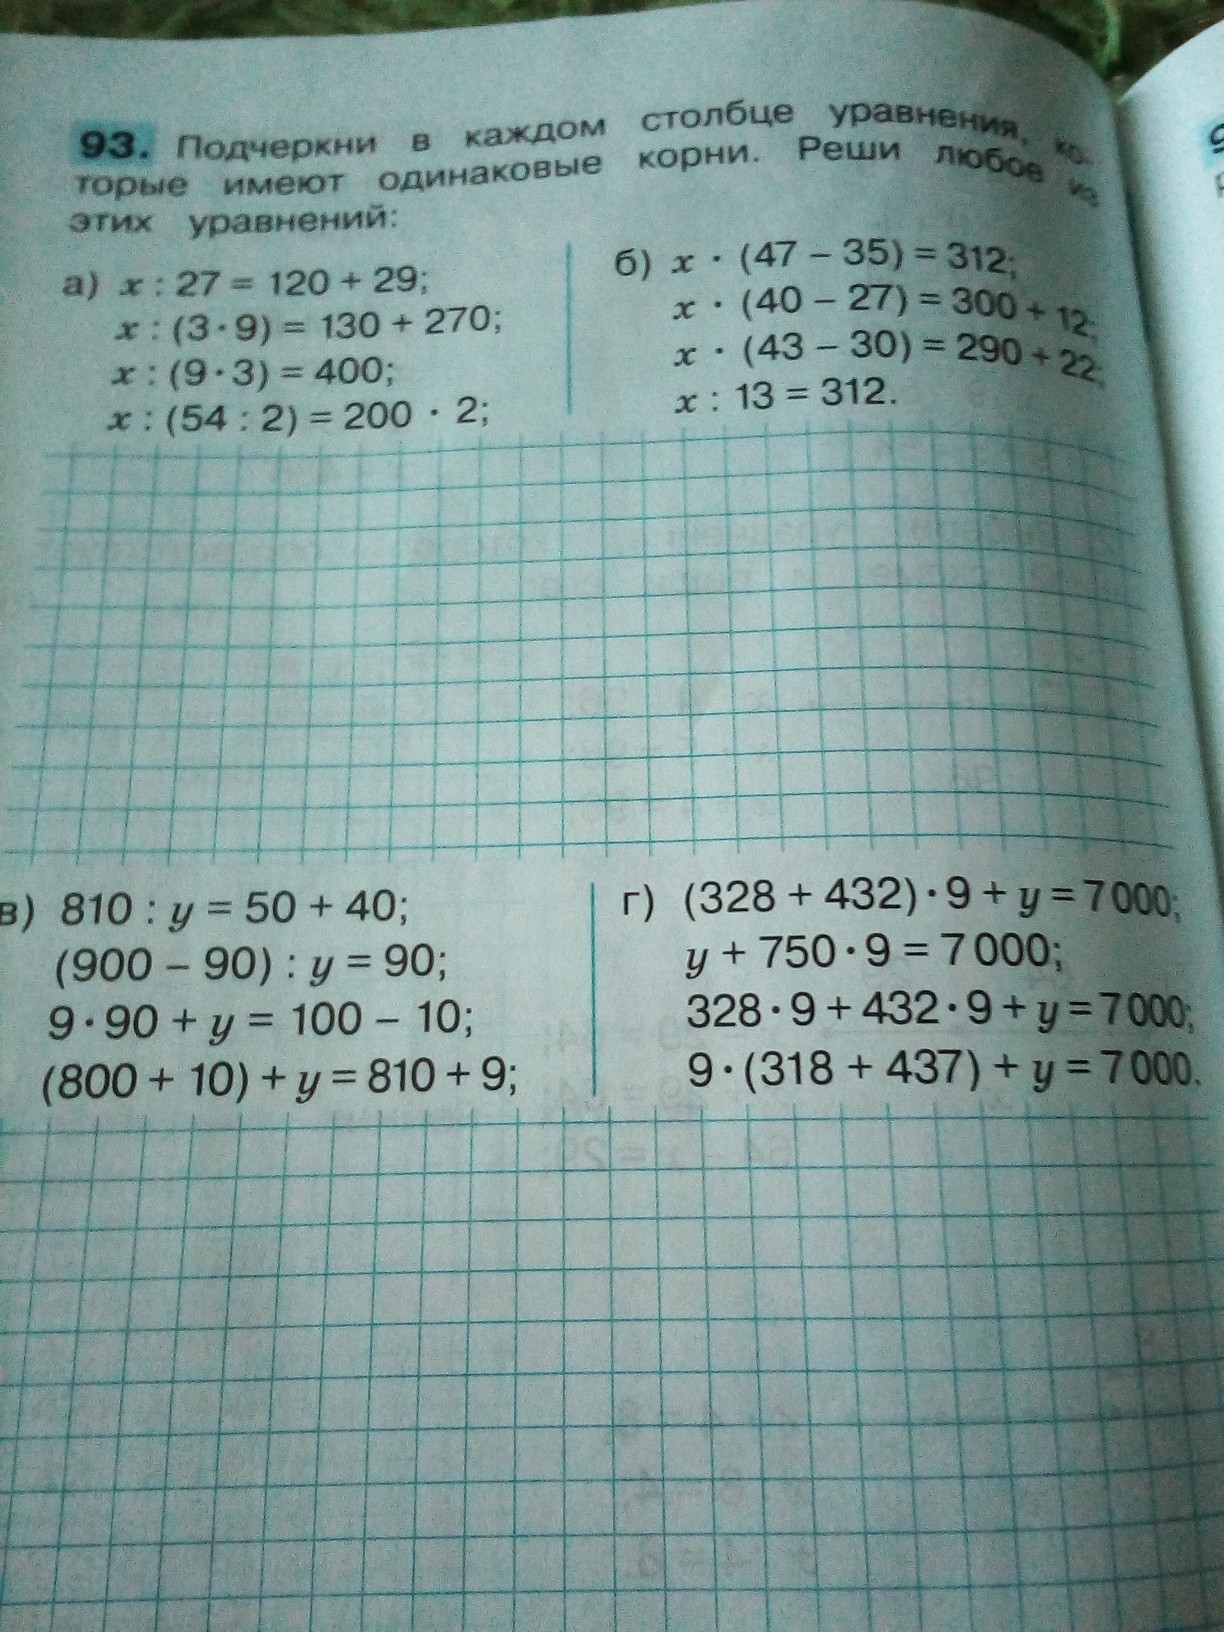 93. Подчеркни в каждом столбце уравнения, ко-
торые имеют одинаковые корни. Реши любое из
этих уравнений:
а) x : 27 = 120 + 29;
x : (3 · 9) = 130 + 270;
x : (9 · 3) = 400;
x : (54 : 2) = 200 · 2;
б) x · (47 – 35) = 312;
x · (40 – 27) = 300 + 12;
x · (43 – 30) = 290 + 22;
x : 13 = 312.
в) 810 : y = 50 + 40;
(900 – 90) : y = 90;
9 · 90 + y = 100 – 10;
(800 + 10) + y = 810 + 9;
г) (328 + 432) · 9 + y = 7000;
y + 750 · 9 = 7000;
328 · 9 + 432 · 9 + y = 7000;
9 · (318 + 437) + y = 7000.